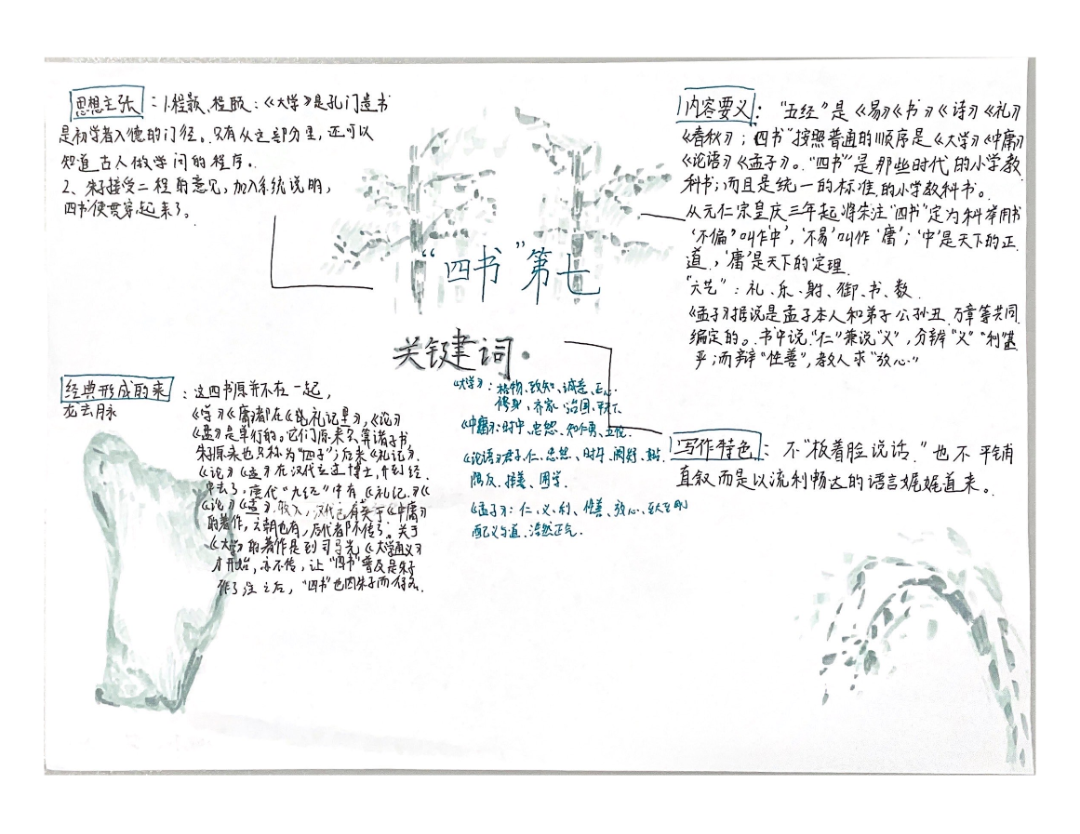 思想主张：1.程颢、程颐：《大学》是孔门遗书
是初学者入德的门径。只有从这部分里，还可以
知道古人做学问的程序。
2、朱子接受二程的意见，加入系统说明，
四书便贯穿起来了。
内容要义："五经"是《易》《书》《诗》《礼》
《春秋》；四书"按照普通的顺序是《大学》《中庸》
《论语》《孟子》。"四书"是那些时代的小学教
科书；而且是统一的标准的小学教科书。
从元仁宗皇庆三年起将朱注"四书"定为科举用书
'不偏'叫作'中'，'不易'叫作'庸'；'中'是天下的正
道，'庸'是天下的定理
"六艺"：礼、乐、射、御、书、数
《孟子》据说是孟子本人和弟子公孙丑、万章等共同
编定的。书中说"仁"兼说"义"，分辨"义""利"甚
严；而辩"性善"，教人求"放心"
"四书"第七
关键词.
《大学》：格物、致知、诚意、正心、
修身、齐家、治国、平天下
《中庸》：时中、忠恕、知仁勇、五伦
《论语》君子、仁、忠恕、时中、
隅反、择善、困学
《孟子》：仁、义、利、性善、放心、
配义与道、浩然正气
经典形成的来
龙去脉
：这四书原并不在一起，
《学》《庸》都在《礼记里》，《论》
《孟》是单行的。它们原来只算诸子书
朱原来也只称为"四子"；后来《礼记》、
《论》《孟》在汉代立过博士，升到经
中去了，唐代"九经"中有《礼记》《
《论》《孟》收入，汉代已有关于《中庸》
的著作，六朝也有，后代都不传了。关于
《大学》的著作是到司马光《大学通义》
才开始，亦不传，让"四书"普及是朱子
作了注之后，"四书"也因朱子而
写作特色：不"板着脸说话"也不平铺
直叙而是以流利畅达的语言娓娓道来。